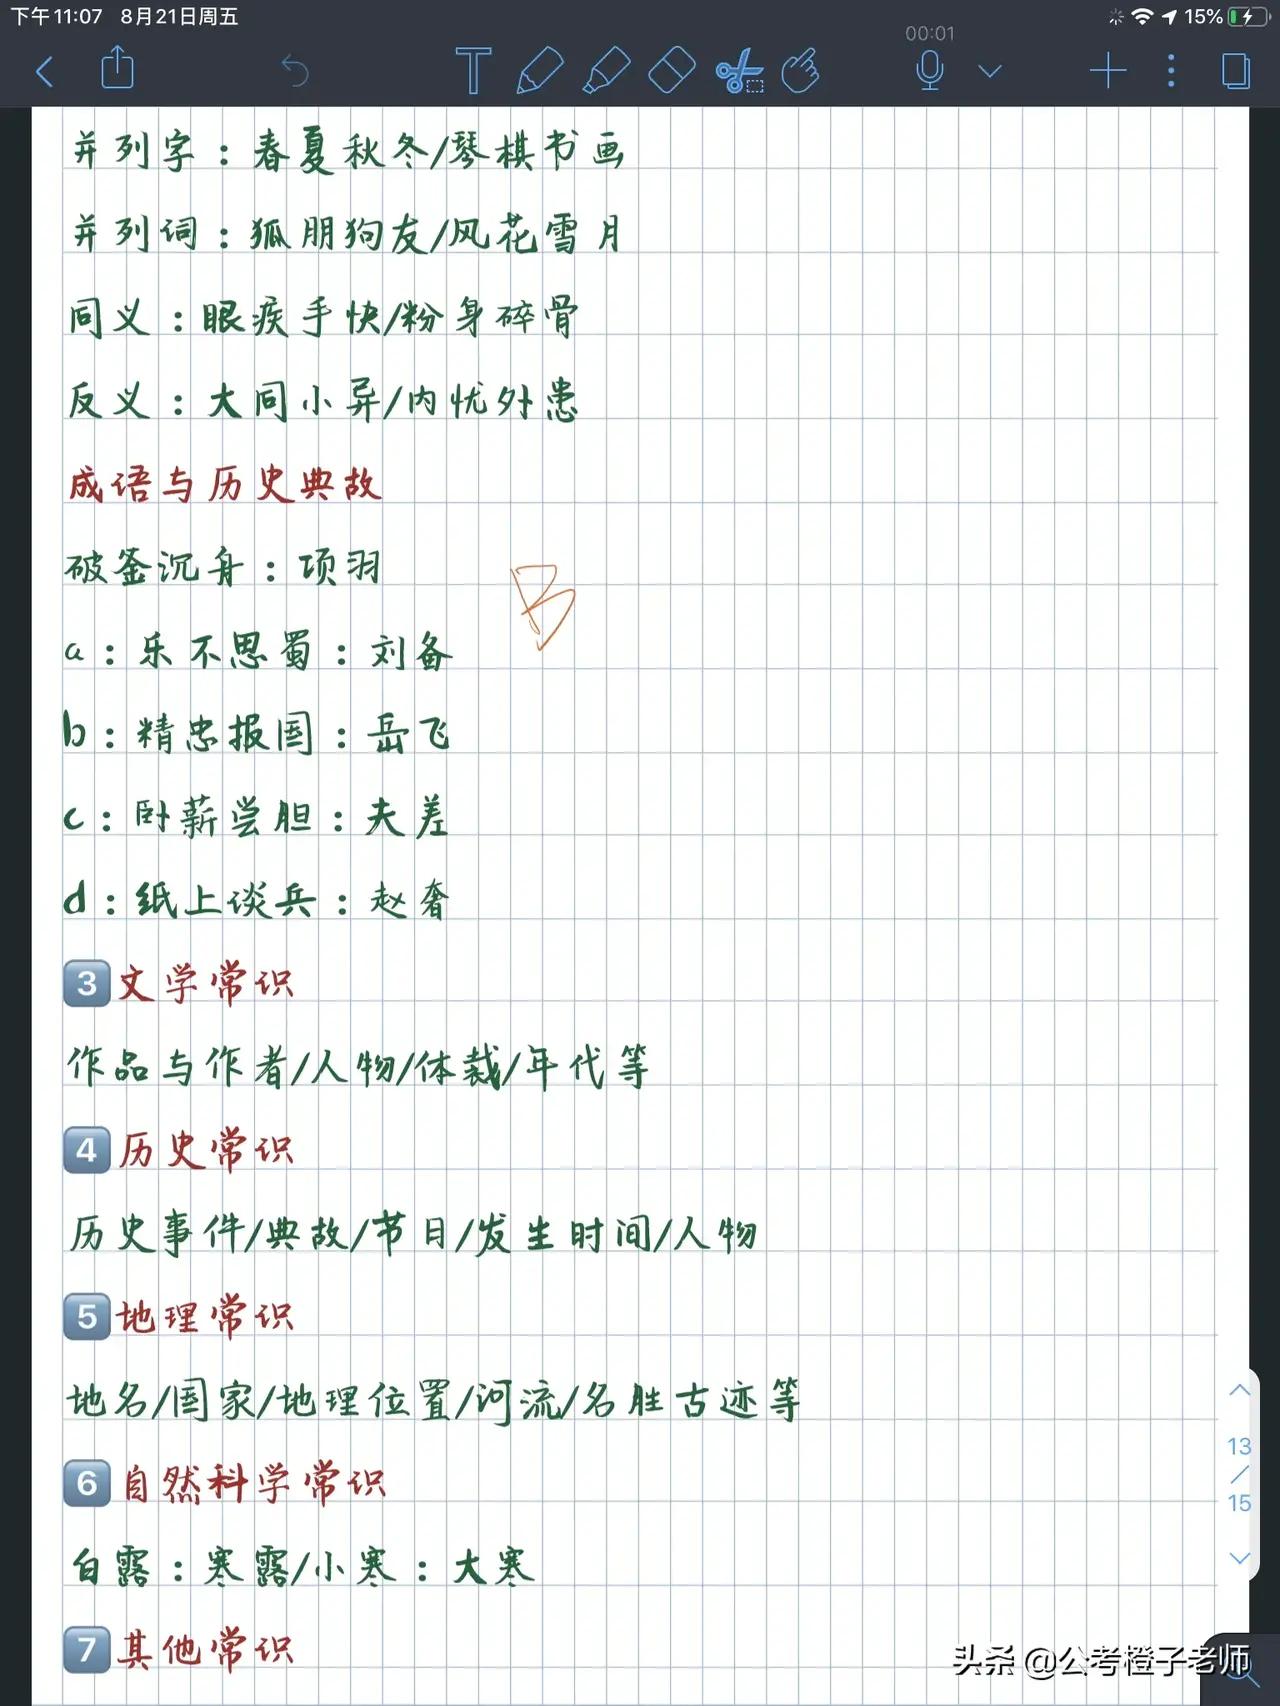 下午11:07 8月21日周五
15%
00:01
并列字：春夏秋冬/琴棋书画
并列词：狐朋狗友/风花雪月
同义：眼疾手快/粉身碎骨
反义：大同小异/内忧外患
成语与历史典故
破釜沉舟：项羽
B
a：乐不思蜀：刘备
b：精忠报国：岳飞
c：卧薪尝胆：夫差
d：纸上谈兵：赵奢
3 文学常识
作品与作者/人物/体裁/年代等
4 历史常识
历史事件/典故/节日/发生时间/人物
5 地理常识
地名/国家/地理位置/河流/名胜古迹等
13
/
15
6 自然科学常识
白露：寒露/小寒：大寒
7 其他常识
头条 @公考橙子老师